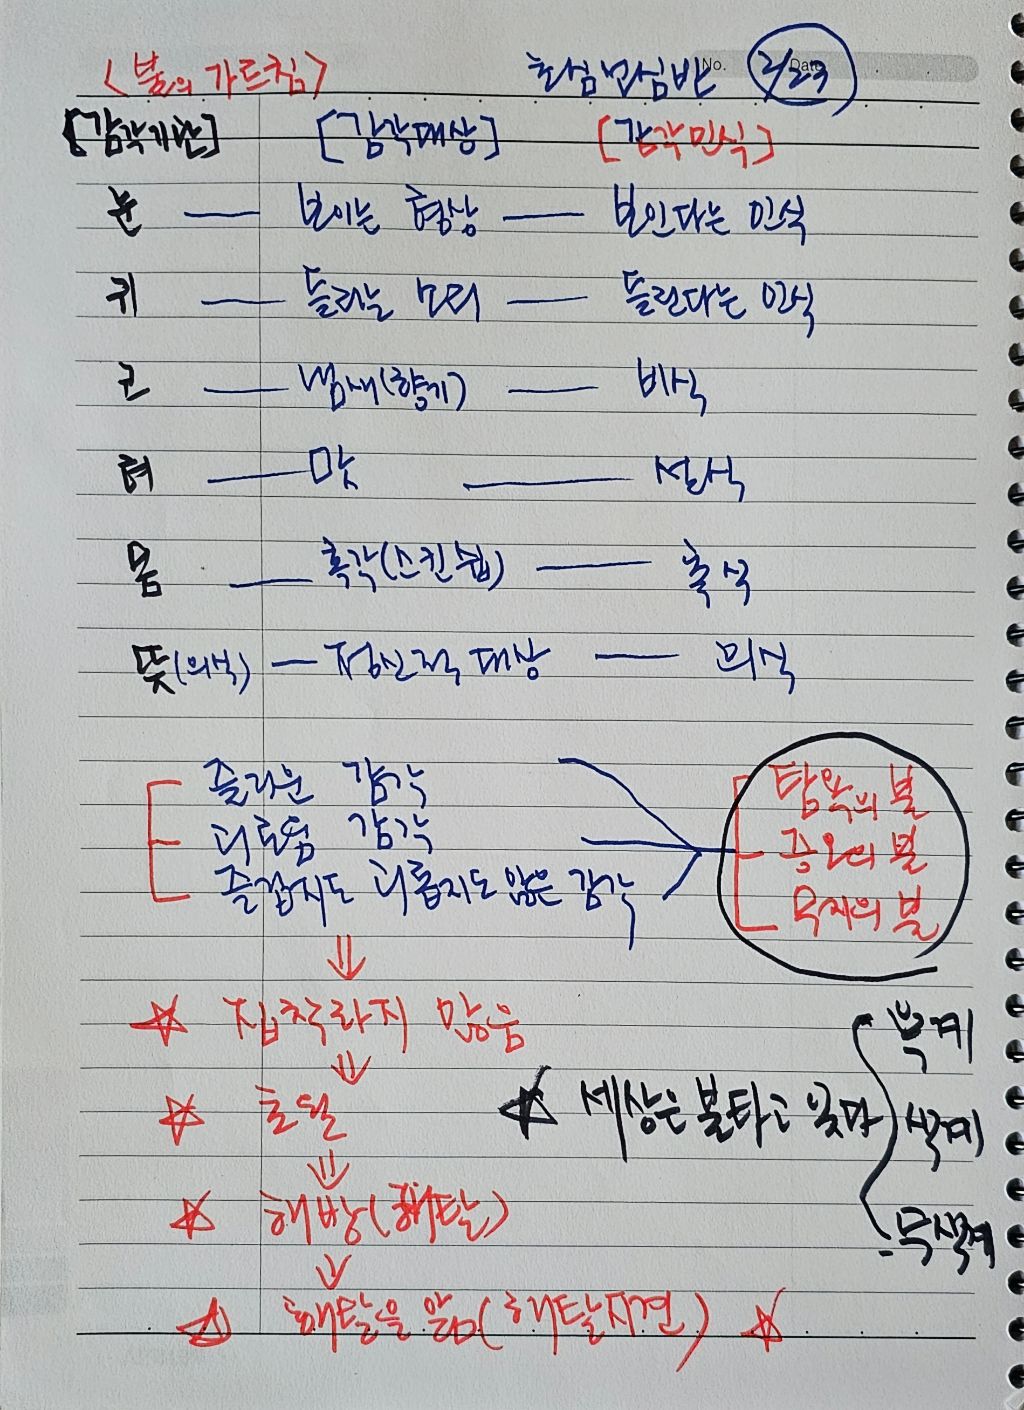 <불의 가르침> 초심민심반 No. Date 2/23
[감각기관] [감각대상] [감각인식]
눈 — 보이는 형상 — 보인다는 인식
귀 — 들리는 소리 — 들린다는 인식
코 — 냄새(향기) — 비식
혀 — 맛 — 설식
몸 — 촉각(스킨쉽) — 촉식
뜻(의식) — 정신적 대상 — 의식
즐거운 감각 탐욕의 불
괴로움 감각 증오의 불
즐겁지도 괴롭지도 않은 감각 무지의 불
⇓
☆ 집착하지 않음 욕계
⇓
☆ 초월 ☆ 세상은 불타고 있다 색계
⇓
☆ 해방(해탈) 무색계
⇓
☆ 해탈을 앎(해탈지견) ☆